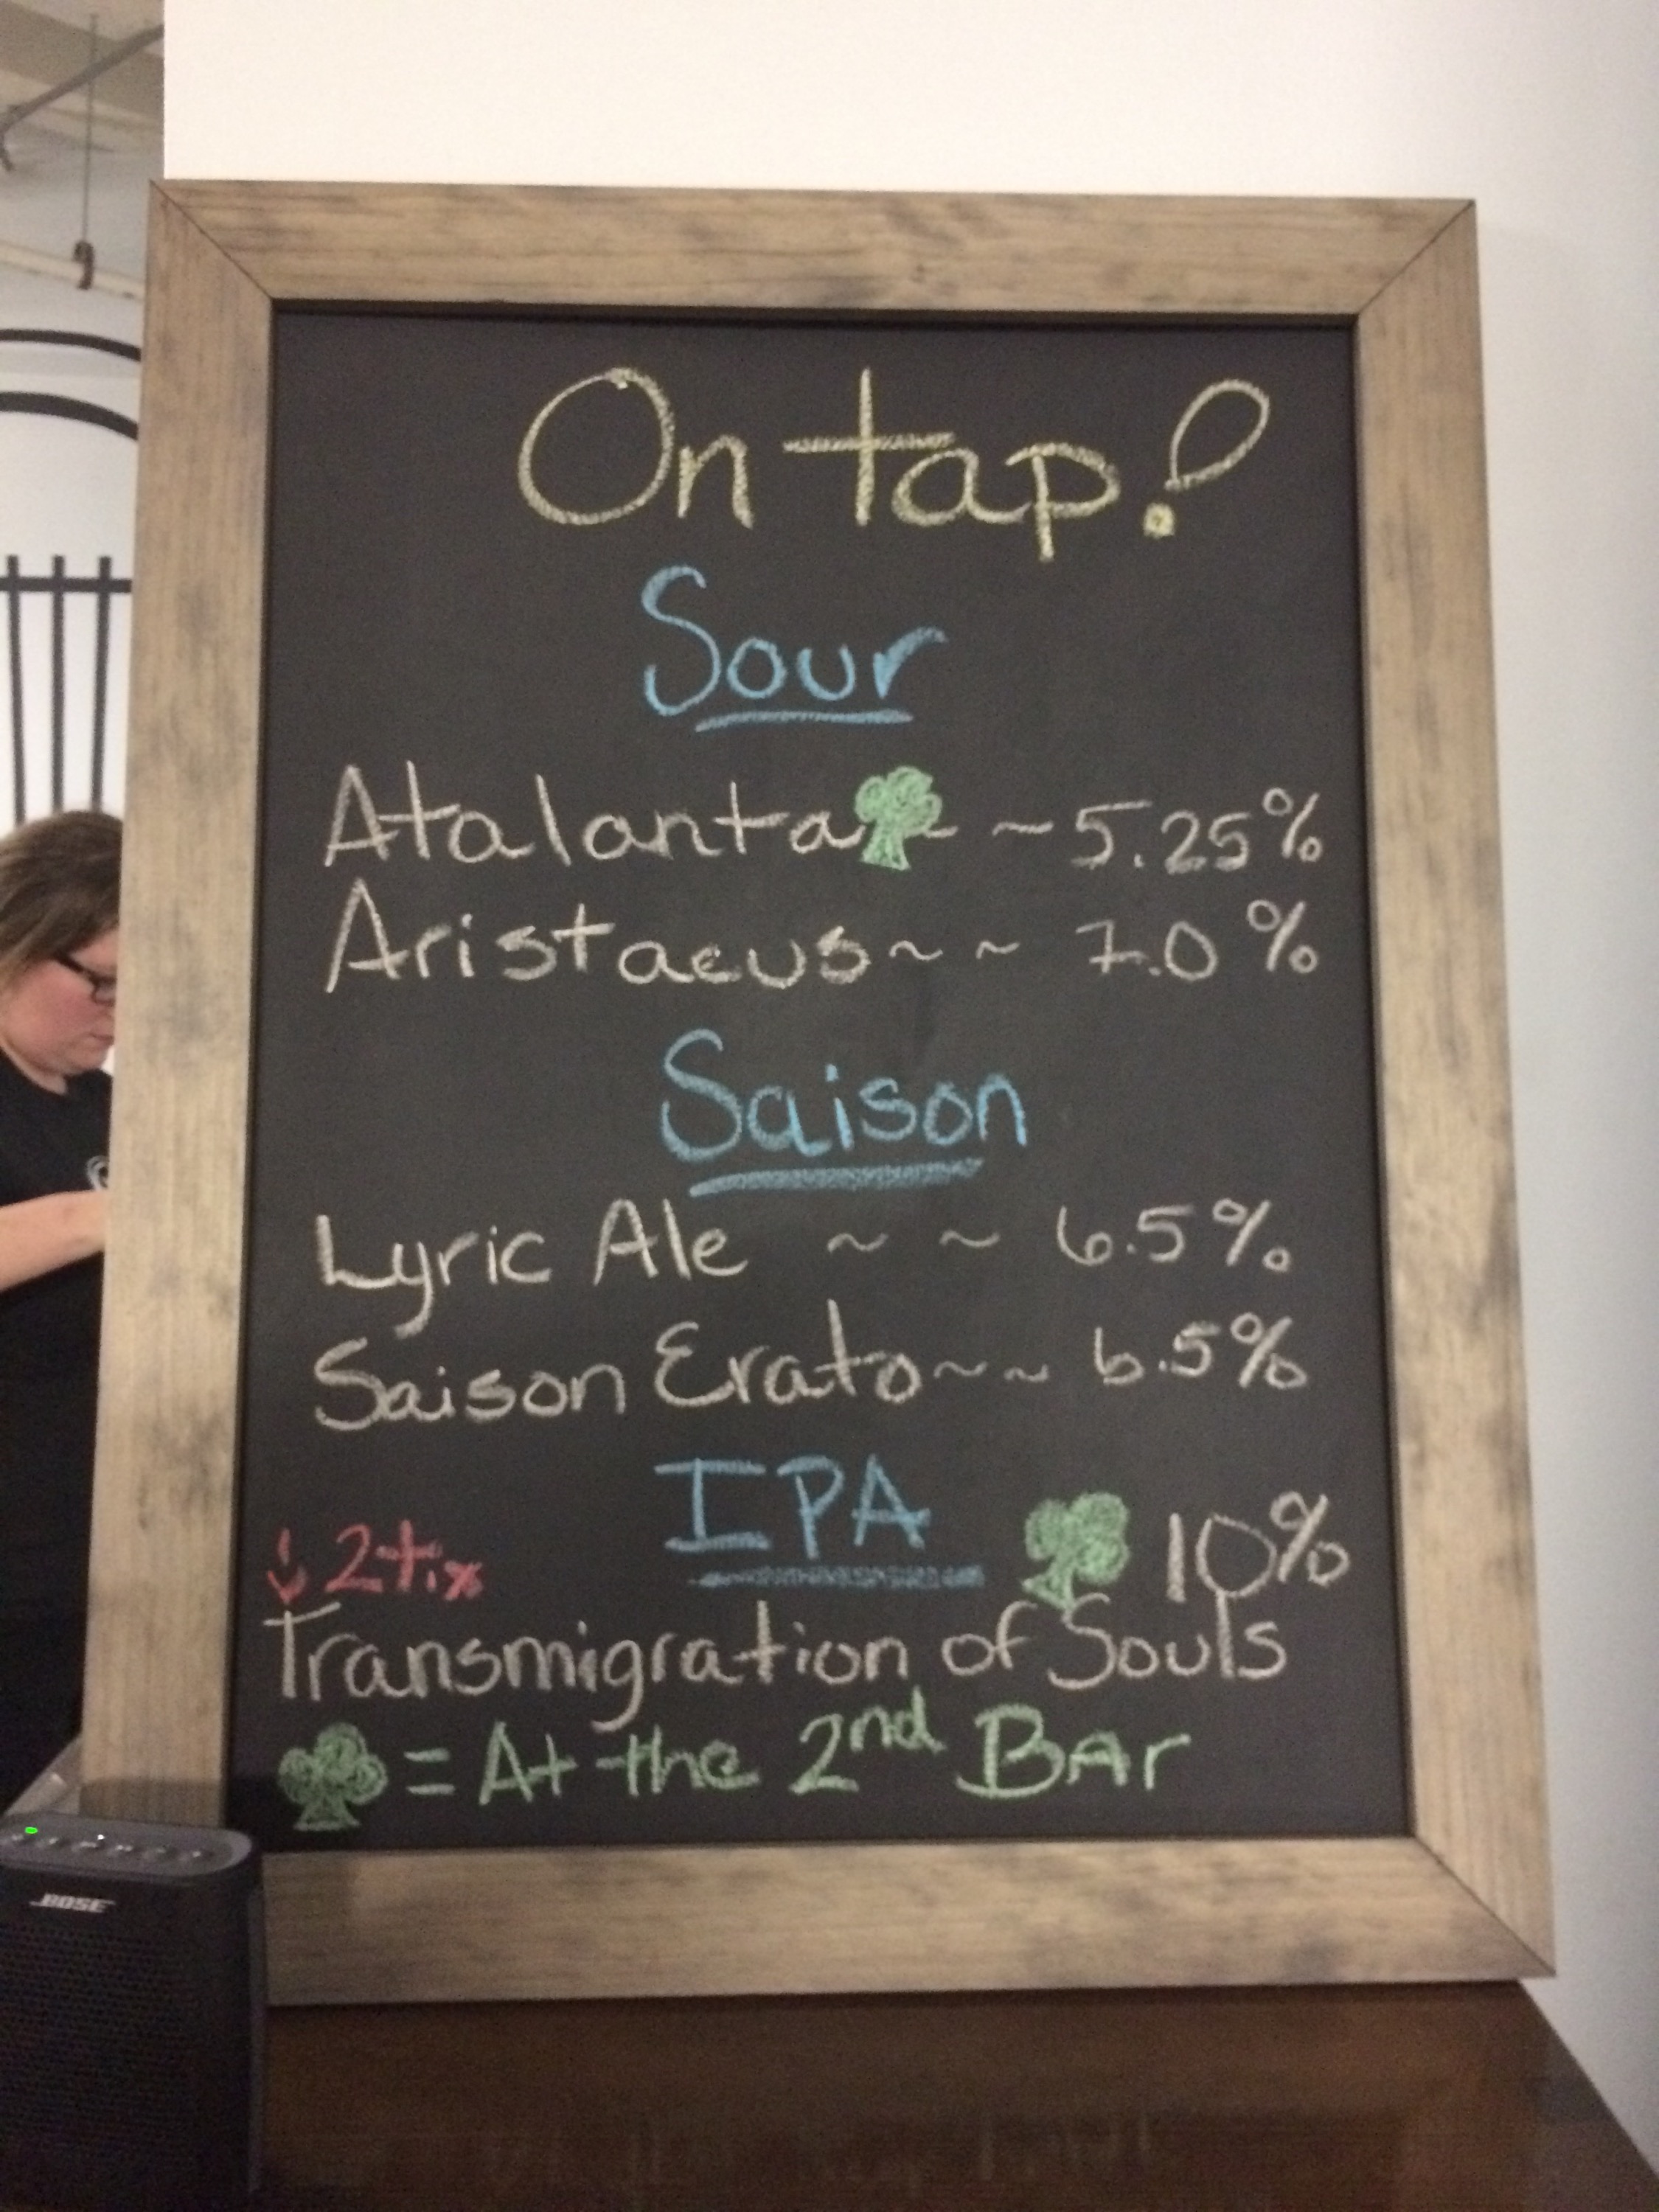 On tap!
Sour
Atalanta ~ ~ 5.25%
Aristaeus ~ ~ 7.0%
Saison
Lyric Ale ~ ~ 6.5%
Saison Erato ~ ~ 6.5%
IPA
↓ 2tix
10%
Transmigration of Souls
= At the 2nd BAr
BOSE